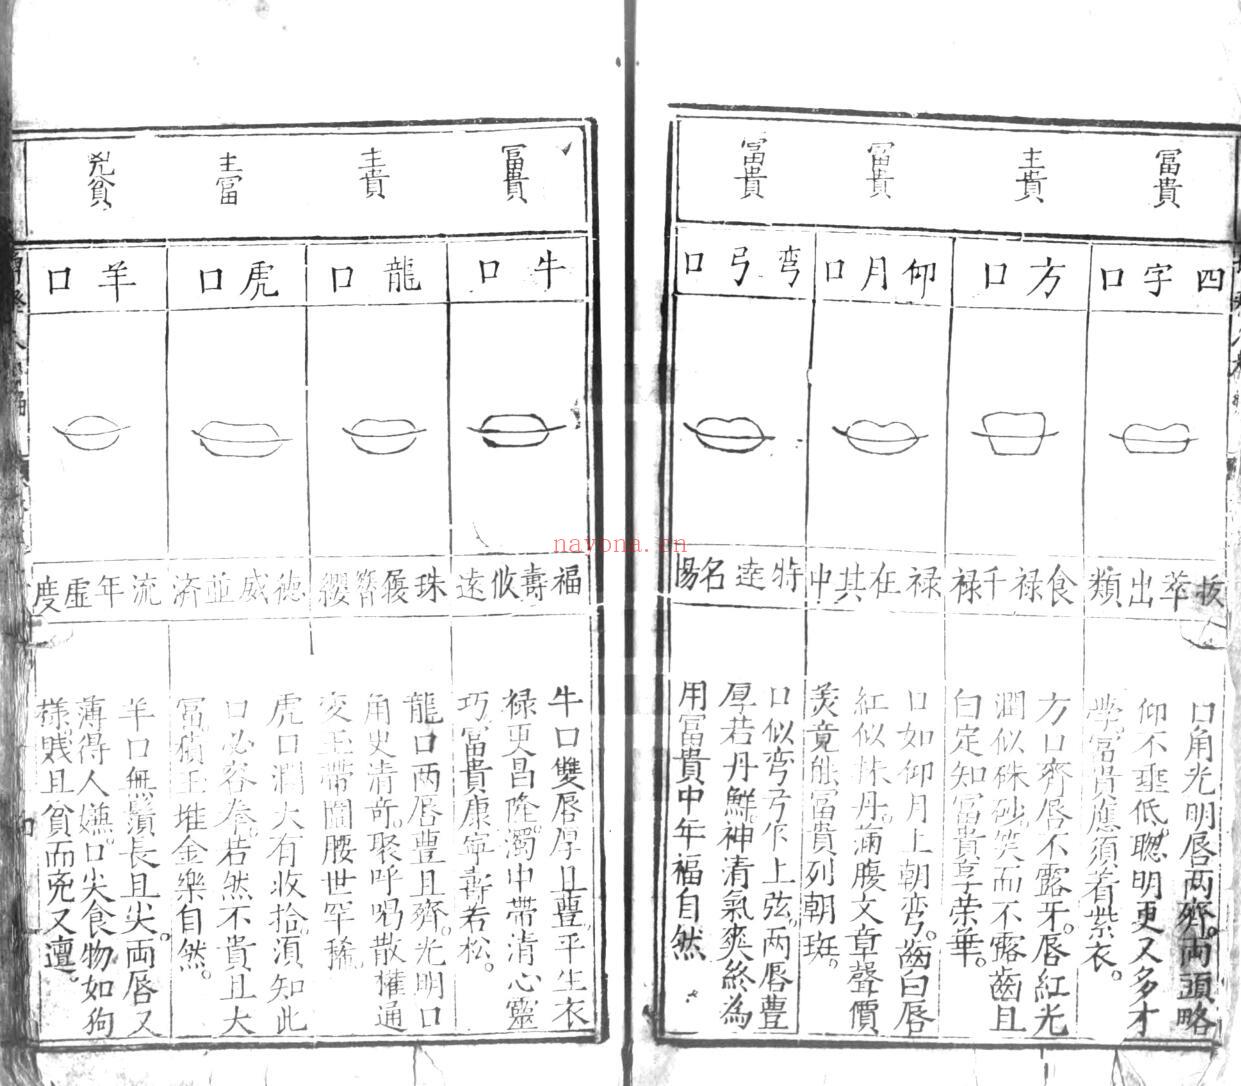 富貴
四字口
拔萃出類
口角光明唇兩齊。兩頭略
仰不垂低。聰明更又多才
學。富貴應須着紫衣。
主貴
方口
食祿千祿
方口齊唇不露牙。唇紅光
潤似硃砂。笑而不露齒且
白。定知富貴享榮華。
富貴
仰月口
祿在其中
口如仰月上朝彎。齒白唇
紅似抹丹。滿腹文章聲價
美。竟能富貴列朝班。
富貴
彎弓口
特達名揚
口似彎弓乍上弦。兩唇豊
厚若丹鮮。神清氣爽終為
用。富貴中年福自然
富貴
牛口
福壽攸遠
牛口雙唇厚且豊。平生衣
祿更昌隆。濁中帶清心靈
巧。富貴康寧壽若松。
主貴
龍口
珠履簪纓
龍口兩唇豊且齊。光明口
角史清奇。聚呼喝散權通
变。玉帶圍腰世罕稀。
主富
虎口
德威並济
虎口濶大有收拾。湏知此
口必容拳。若然不貴且大
富。積玉堆金樂自然。
兇貧
羊口
流年虛度
羊口無鬚長且尖。兩唇又
薄得人嫌。口尖食物如狗
樣。賤且貧而兇又邅。
nayona.cn